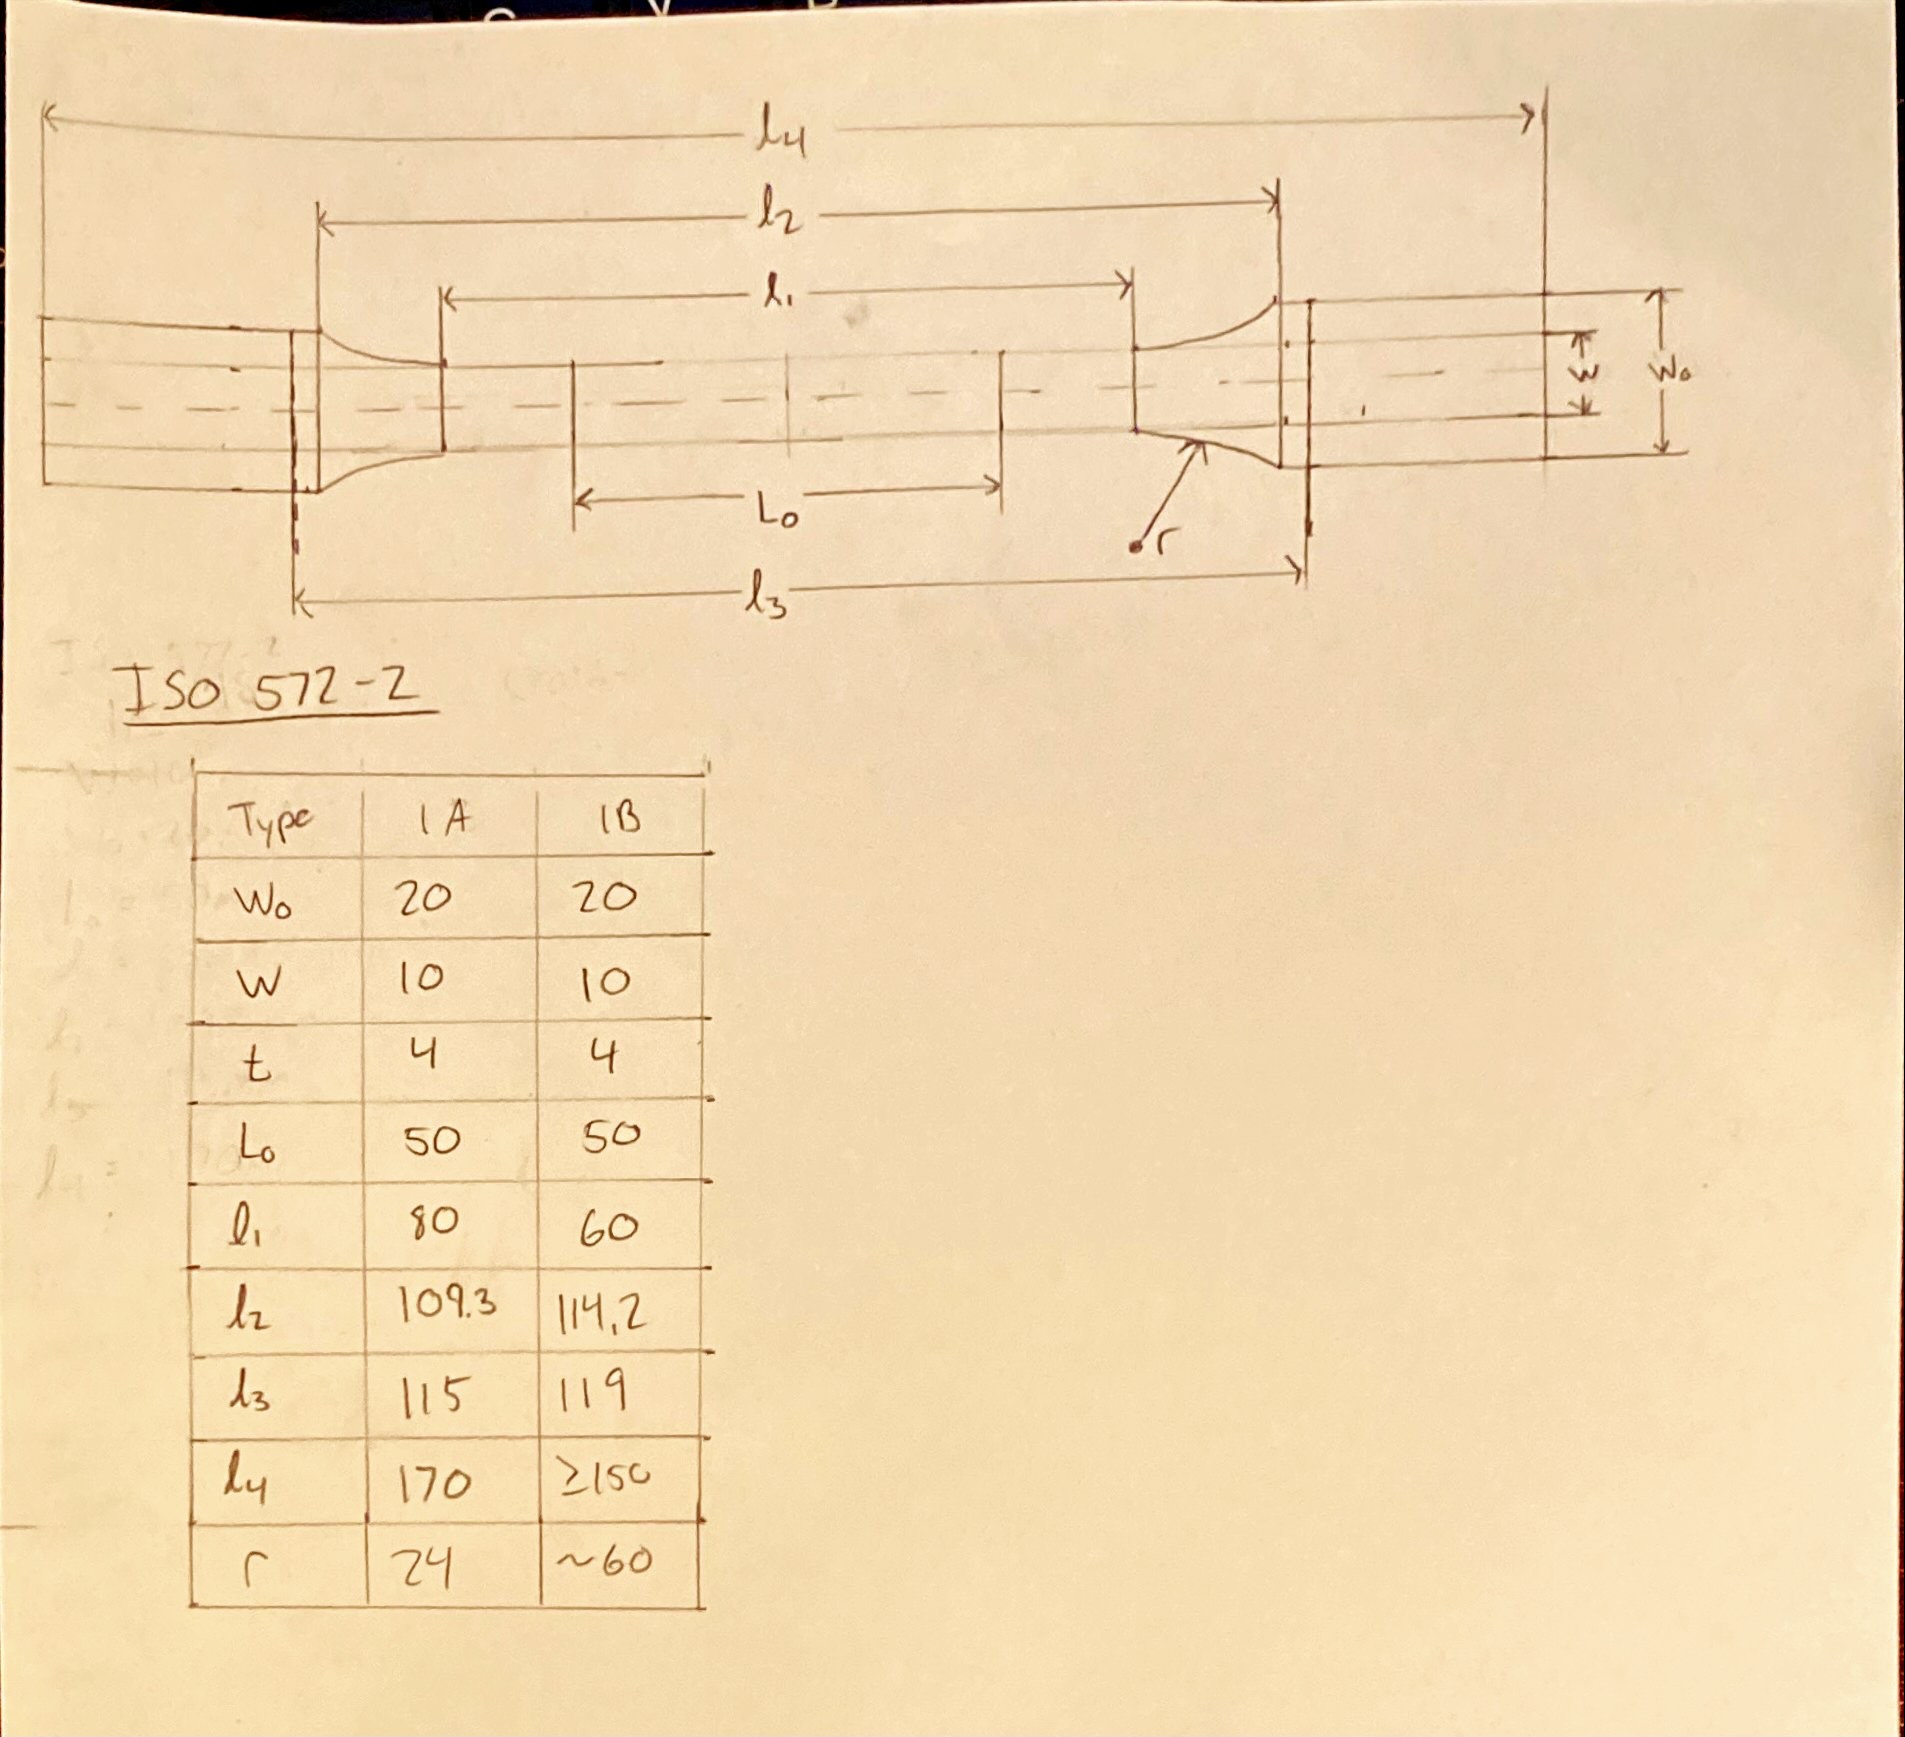 l4
l2
l1
w
w0
L0
r
l3
ISO 572-2
Type 1A 1B
W0 20 20
W 10 10
t 4 4
L0 50 50
l1 80 60
l2 109.3 114.2
l3 115 119
l4 170 ≥150
r 24 ~60